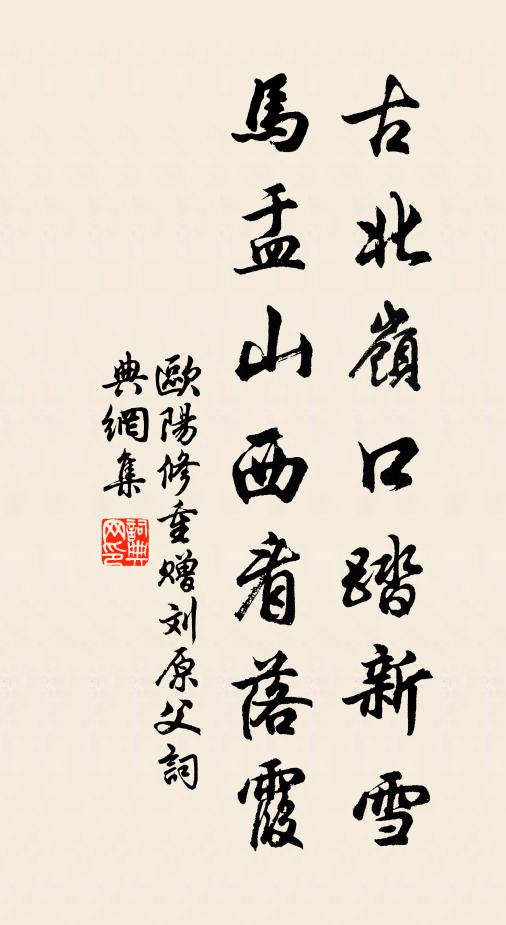 古北嶺口踏新雪
馬盂山西看落霞
歐陽修重赠刘原父詞
典網集
詞典
网印